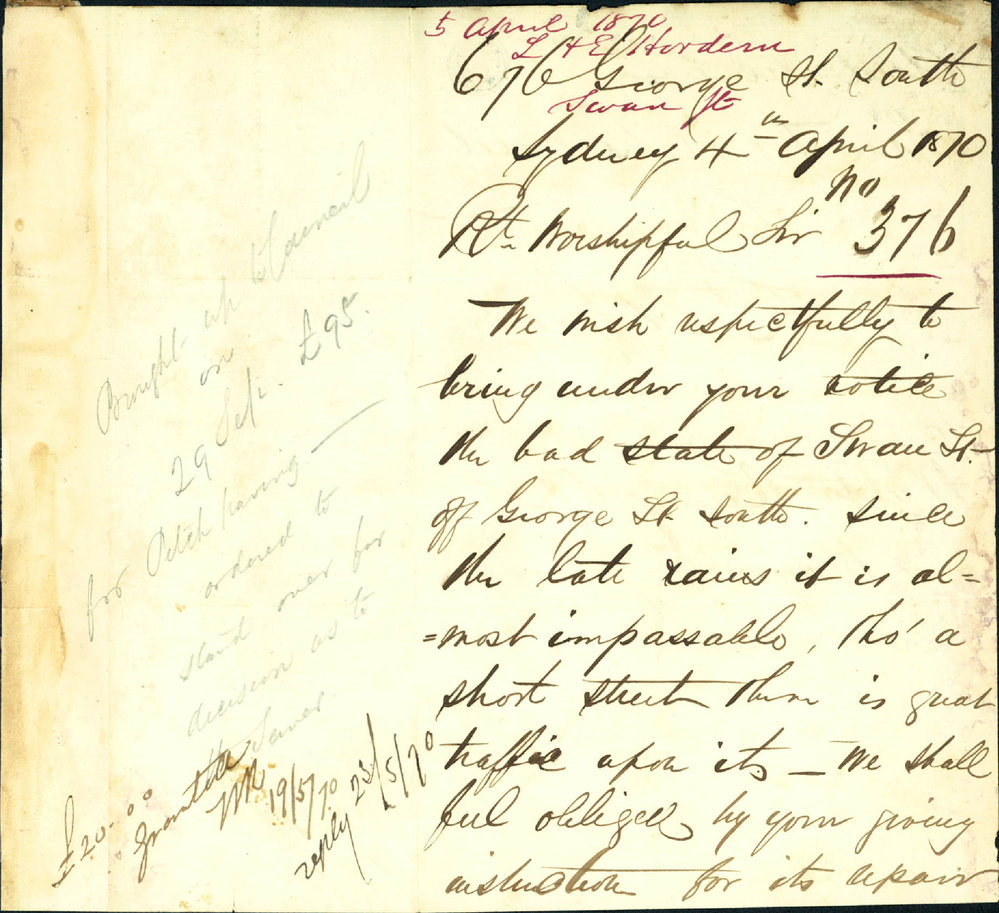 5 April 1870
L & E Hordern
676 George St. South
Swan St
Sydney 4th April 1870
No
Rt. Worshipful Sir 376
We wish respectfully to
bring under your notice
the bad state of Swan St.
off George St South. Since
the late rains it is al=
=most impassable, tho' a
short street there is great
traffic upon its – We shall
feel obliged by your giving
instruction for its repair
Brought up to Council
on
29 Sept. £95.
for Pitch paving —
ordered to
stand over for
decision as to
Sewer.
£20.00
Granted
19/5/70
reply 23/5/70